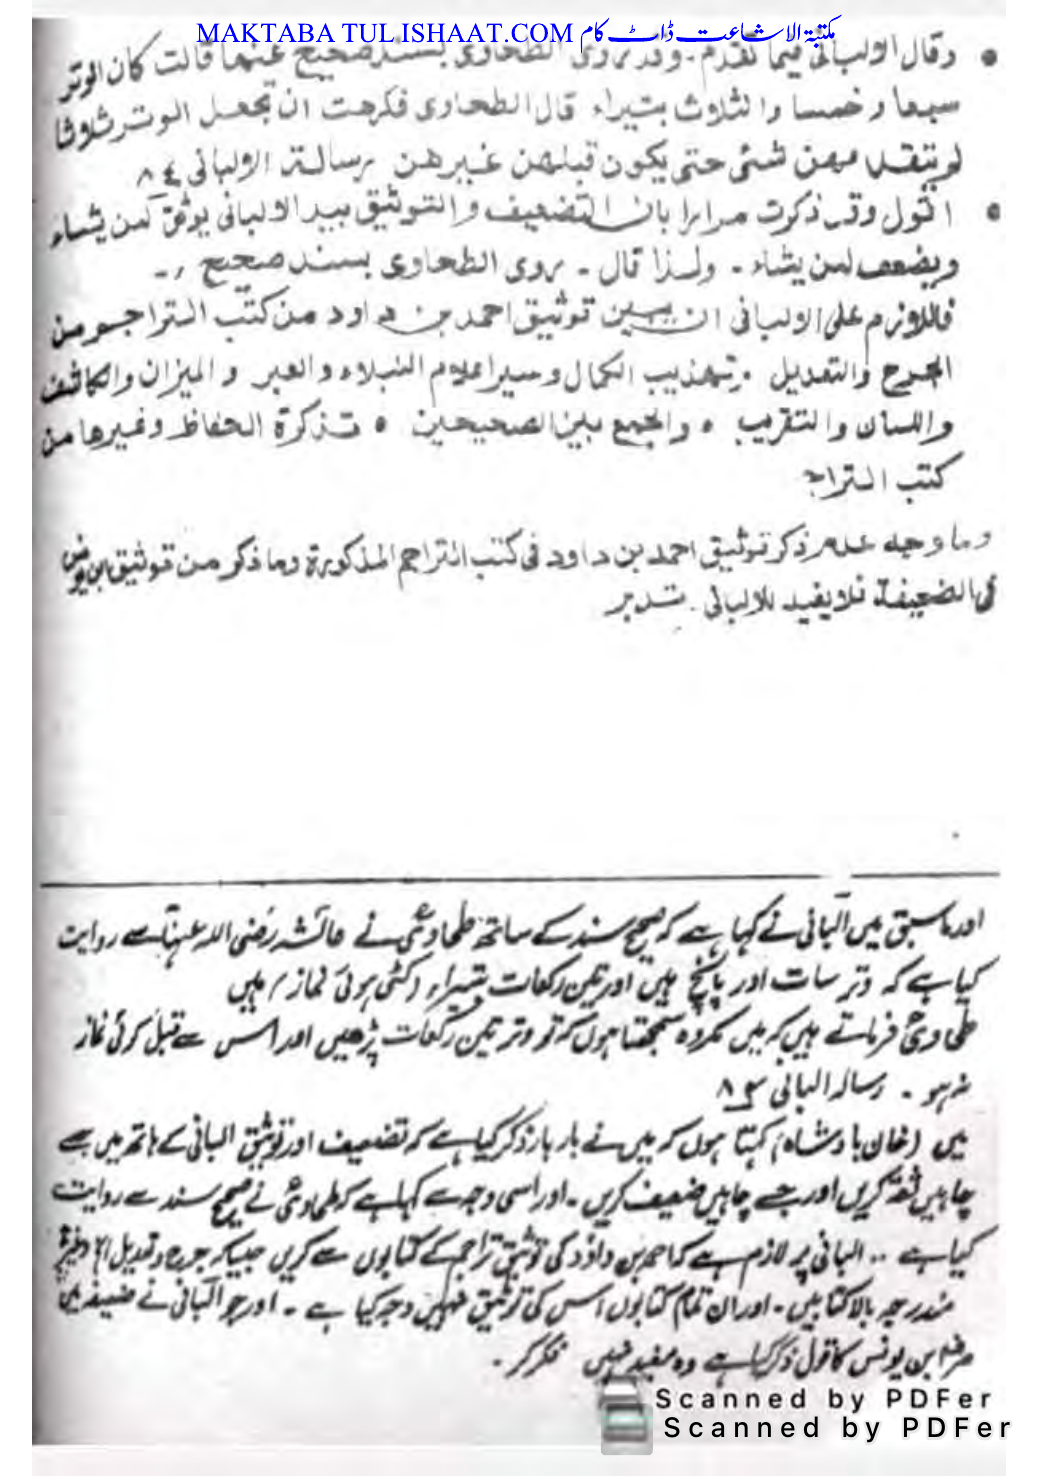 MAKTABA TUL ISHAAT.COM مکتبۃ الاشاعت ڈاٹ کام
• وقال الالبانی فیما تقدم . وقد روی الطحاوی بسند صحیح عنها قالت کان الوتر
سبعا و خمسا والثلاث بتیراء قال الطحاوی فکرهت ان تجعل الوتر ثلاثا
لم یتقد مهن شئی حتی یکون قبلهن غیرهن رسالة الالبانی ٨٤
• اقول وقد ذکرت مرارا بان التضعیف والتوثیق بید الالبانی یوثق لمن یشاء
ویضعف لمن یشاء ۔ ولذا قال ۔ روی الطحاوی بسند صحیح
فاللازم علی الالبانی ان یبین توثیق احمد بن داود من کتب التراجم من
الجرح والتعدیل . وتهذیب الکمال وسیر اعلام النبلاء والعبر والمیزان والکاشف
واللسان والتقریب • والجمع بین الصحیحین • تذکرة الحفاظ وغیرها من
کتب التراجم
وما وجه عدم ذکر توثیق احمد بن داود فی کتب التراجم المذکورة وما ذکر من توثیق ابن یونس
فی الضعیفة فلا یفید للالبانی . تدبر
اور ماسبق میں البانی نے کہا ہے کہ صحیح سند کے ساتھ طحاوی نے عائشہ رضی اللہ عنہا سے روایت
کیا ہے کہ وتر سات اور پانچ ہیں اور تین رکعات بتیراء (کٹی ہوئی نماز) ہیں
طحاوی فرماتے ہیں کہ میں مکروہ سمجھتا ہوں کہ تو وتر تین رکعات پڑھیں اور اس سے قبل کوئی نماز
نہ ہو ۔ رسالہ البانی
میں (خان بادشاہ) کہتا ہوں کہ میں نے بار بار ذکر کیا ہے کہ تضعیف اور توثیق البانی کے ہاتھ میں ہے
چاہیں ثقہ کریں اور جسے چاہیں ضعیف کریں ۔ اور اسی وجہ سے کہا ہے کہ طحاوی نے صحیح سند سے روایت
کیا ہے .. البانی پر لازم ہے کہ احمد بن داؤد کی توثیق تراجم کے کتابوں سے کریں جیسا کہ جرح و تعدیل
مندرجہ بالا کتابیں ۔ اور ان تمام کتابوں اس کی توثیق نہیں وجہ کیا ہے ۔ اور جو البانی نے ضعیفہ میں
صرف ابن یونس کا قول ذکر کیا ہے وہ مفید نہیں فکر کر .
Scanned by PDFer
Scanned by PDFer